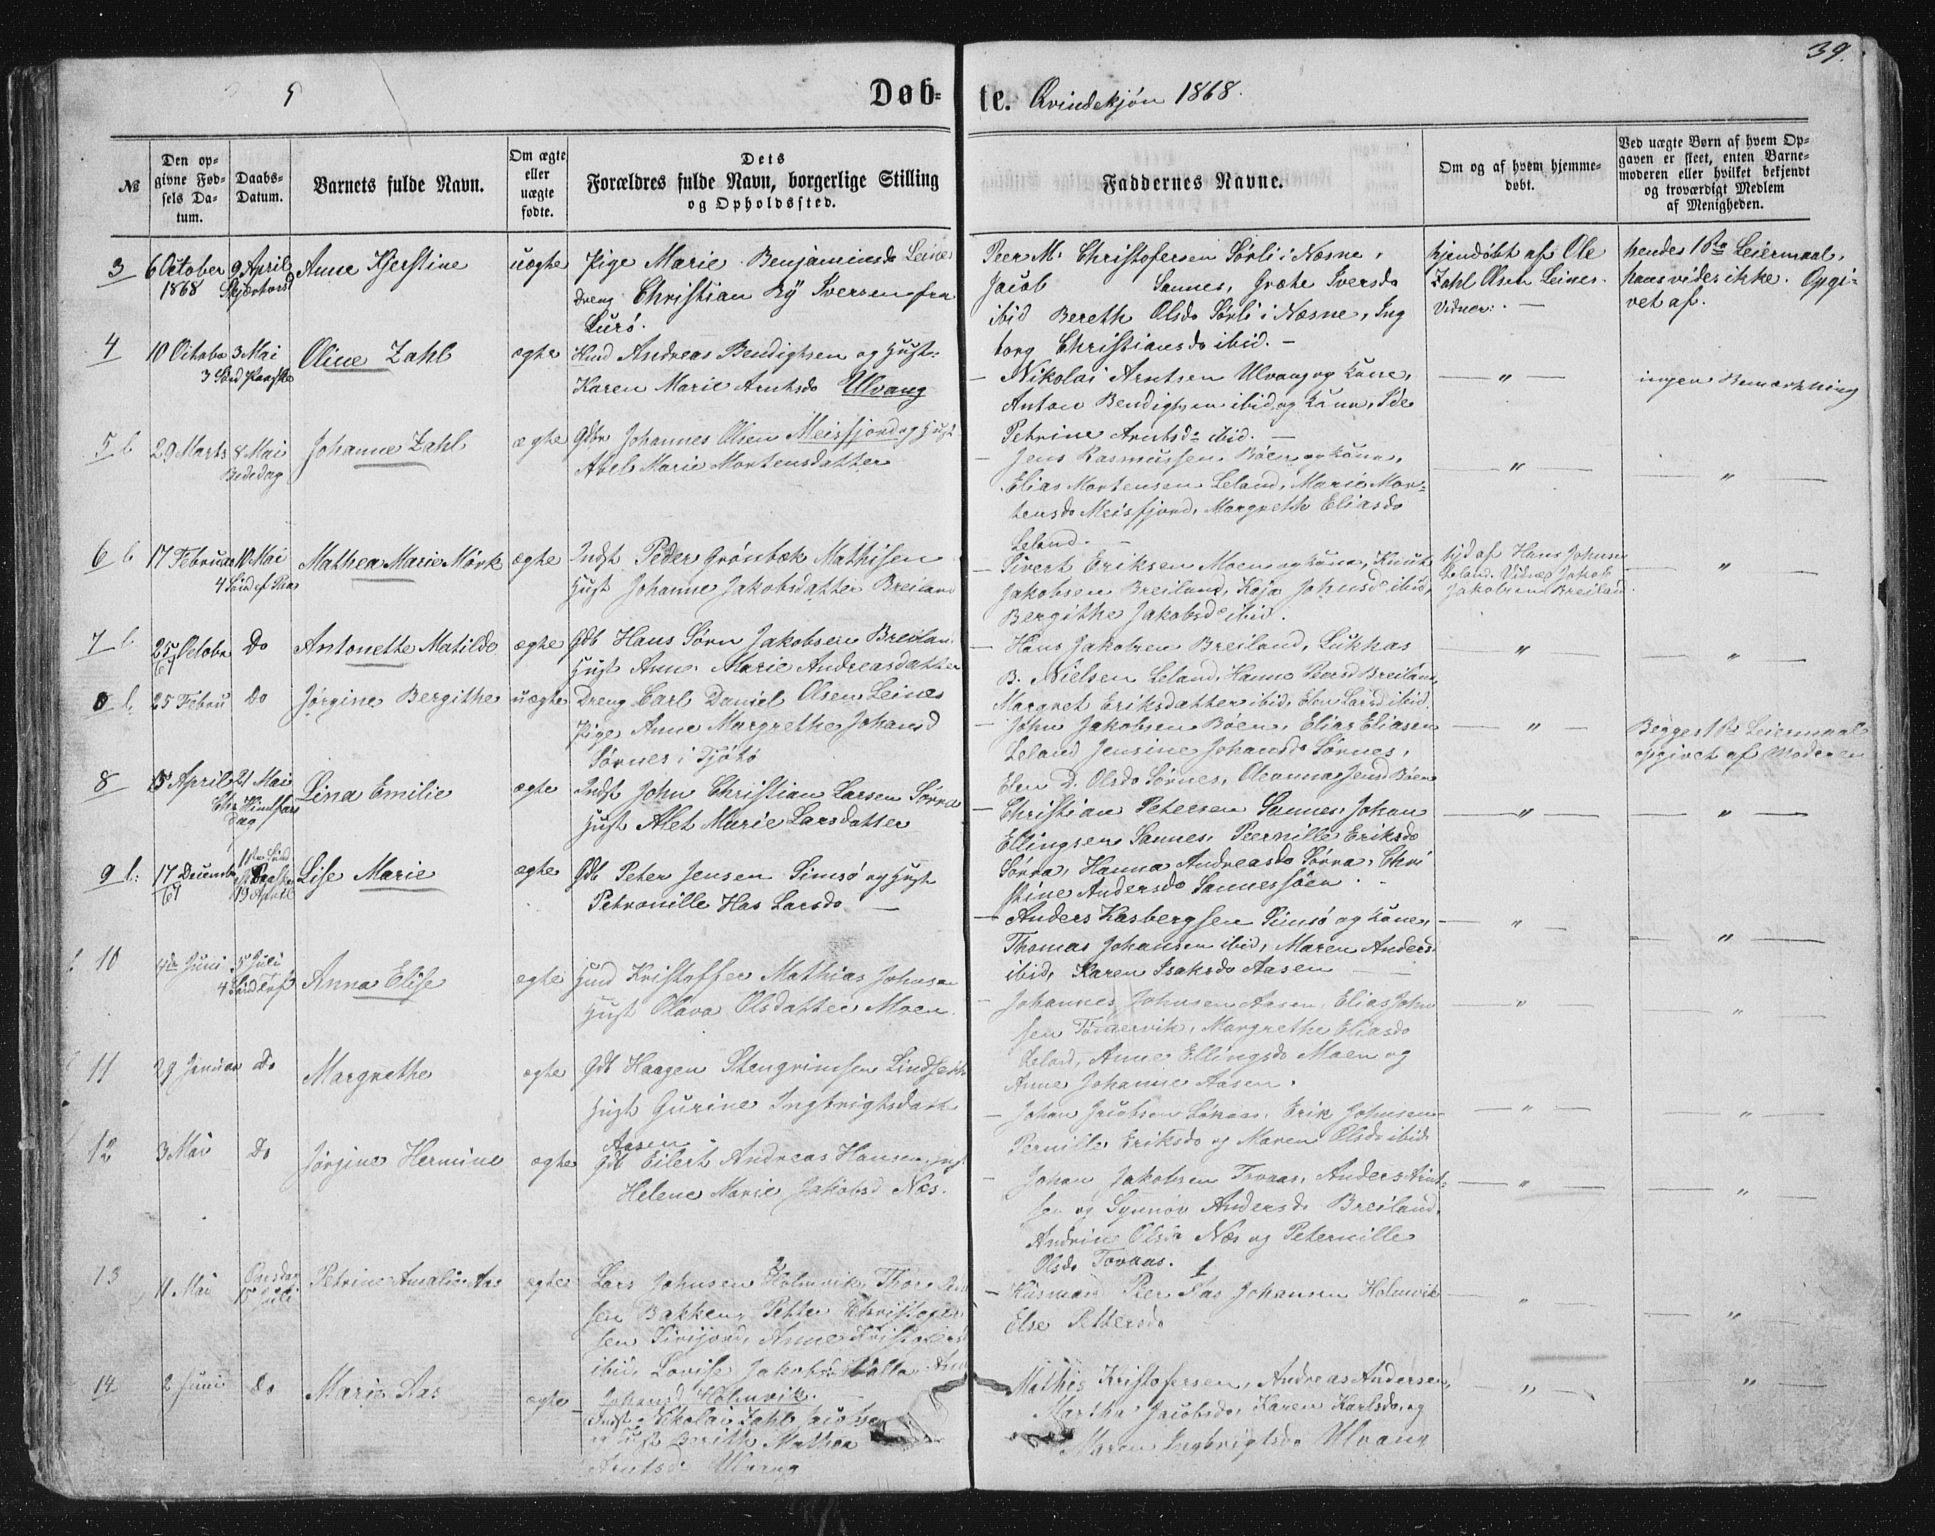 39.
Døb-
te. Qvindekjøn 1868.
№
Den op-
givne Fød-
sels Da-
tum.
Daabs-
Datum.
Barnets fulde Navn.
Om ægte
eller
uægte
fødte.
Dets
Forældres fulde Navn, borgerlige Stilling
og Opholdssted.
Faddernes Navne.
Om og af hvem hjemme-
døbt.
Ved uægte Børn af hvem Op-
gaven er skeet, enten Barne-
moderen eller hvilket bekjendt
og troværdigt Medlem
af Menigheden.
3
6 October
1868
9 April
Skjærtorsd
Anne Kjerstine
uægte
Pige Marie Benjaminsd Leines
Dreng Christian By Iversen fra
Lurø.
Peer M. Christofersen Sørli i Næsne,
Jacob Sannes, Grethe Iversd
ibid Bereth Olsd Sørli i Næsne, Ing
borg Christiansd ibid. —
hjemdøbt af Ole
Zahl Olsen Leines.
Vidner: —
hendes 1ste Leiermaal,
hans vides ikke. Opgi-
vet af.
4
10 Octobr
3 Mai
3 Sønd Paaske
Oline Zahl
ægte
Huusmd Andreas Bendigtsen og Hust:
Karen Marie Arntsd Ulvang
— Nikolai Arntsen Ulvang og Kone,
Anton Bendigtsen ibid og Kone, Ide
Petrine Arntsd ibid. —
— " —
ingen Bemærkning
5 l
29 Marts
8 Mai
Bededag
Johanne Zahl
ægte
Gdbr Johannes Olsen Meisfjord og Hust
Abel Marie Mortensdatter
— Jens Rasmussen Bøen og Kone,
Elias Mortensen Leland, Marie Mor-
tensd Meisfjord, Margreth Eliasd
Leland. —
— " —
— " —
6 l
17 Februar
10 Mai
4 Sønd ef Paas
Mathea Marie Mørk
ægte
Indst Peder Grønbæk Mathisen
Hust Johanne Jakobsdatter Breiland
— Sivert Eriksen Moen og Kone, Knut
Jakobsen Breiland, Kaja Johnsd ibid,
Bergithe Jakobsd ibid.
hjd af Hans Johnsen
Leland. Vidne Jakob
Jakobsen Breiland
— " —
7 l
25 October
67
Do
Antonette Matilde
ægte
Gdb Hans Sørn Jakobsen Breilan
Hust Anne Marie Andreasdatter
— Hans Jakobsen Breiland, Lukkas
B. Nielsen Leland, Hanna Peersd Breiland,
Margret Eriksdatter ibid, Elen Larsd ibid.
— " —
— " —
8 l.
25 Febru
Do
Jørgine Bergithe
uægte
Dreng Carl Daniel Olsen Leines
Pige Anne Margrethe Johansd
Sørnes i Tjøtø
— John Jakobsen Bøen, Elias Eliasen
Leland Jensine Johansd Sørnes,
Elen D. Olsd Sørnes, Oleanna Jensd Bøen
— " —
Begges 1ste Leiermaal
opgivet af Moderen
8
5 April
21 Mai
Chr Himlfars
dag
Lina Emilie
ægte
Indst John Christian Larsen Sørra
Hust Alet Marie Larsdatter
— Christian Petersen Sannes, Johan
Ellingsen Sannes, Peernille Eriksd
Sørra, Hanna Andreasd Sørra, Chri
stine Andersd Sannessøen.
— " —
— " —
9 l:
17 Decembr
67
1ste Sønd
19 April
Lise Marie
ægte
Gdb Peter Jensen Simsø og Hust
Petronille Has Larsd —
— Anders Kasbergsen Simsø og Kone,
Thomas Johansen ibid, Maren Anders
ibid, Karen Isaksd Aasen —
— " —
— " —
10
4de Juni
5 Juli
4 Sønd Tref
Anna Elise
ægte
Husmd Kristoffer Mathias Johnsen
Hust Olava Olsdatter Moen
— Johannes Johnsen Aasen, Elias John
sen Tømmervik, Margrethe Eliasd
Leland, Anne Ellingsd Moen og
Anne Johanne Aasen.
— " —
— " —
11
29 Januar
Do
Margrethe
ægte
Gdb Haagen Stengrimsen Lindseth
Hust Gurine Ingbrigtsdatt
Aasen
— Johan Jacobsen Løkaas, Erik Johnsen
Pernille Eriksd og Maren Olsd ibid
— " —
— " —
12
3 Mai
Do
Jørgine Hermine
ægte
Gdb Eilert Andreas Hansen, Hust
Helene Marie Jakobsd Næs.
— Johan Jakobsen Tovaas, Anders Arnt-
sen og Synnøv Andersd Breiland,
Andrine Olsd Næs og Peternille
Olsd Tovaas.
— " —
— " —
13
11 Mai
Onsdag
15 Juli
Petrine Amalie Aas
ægte
2
Lars Johnsen Holmvik, Thor
sen Bakken, Petter Christofer
sen Sivijord, Anne Kristofersd
ibid, Lovise Jakobsd Valla
Johansd Holmvik.
1
— Husmand Peer Aas Johansen Holmvik
Else Pettersd
— " —
— " —
14
2 Juni
Do
Marie Aas
ægte
Indst Nikolai Zahl Jacobse
og Hust Berith Mathea
Arntsd Ulvang
Mathis Kristofersen, Andreas Andersen,
Martha Jacobsd, Karen Karlsd, og
Maren Ingbrigtsd Ulvang
— " —
"